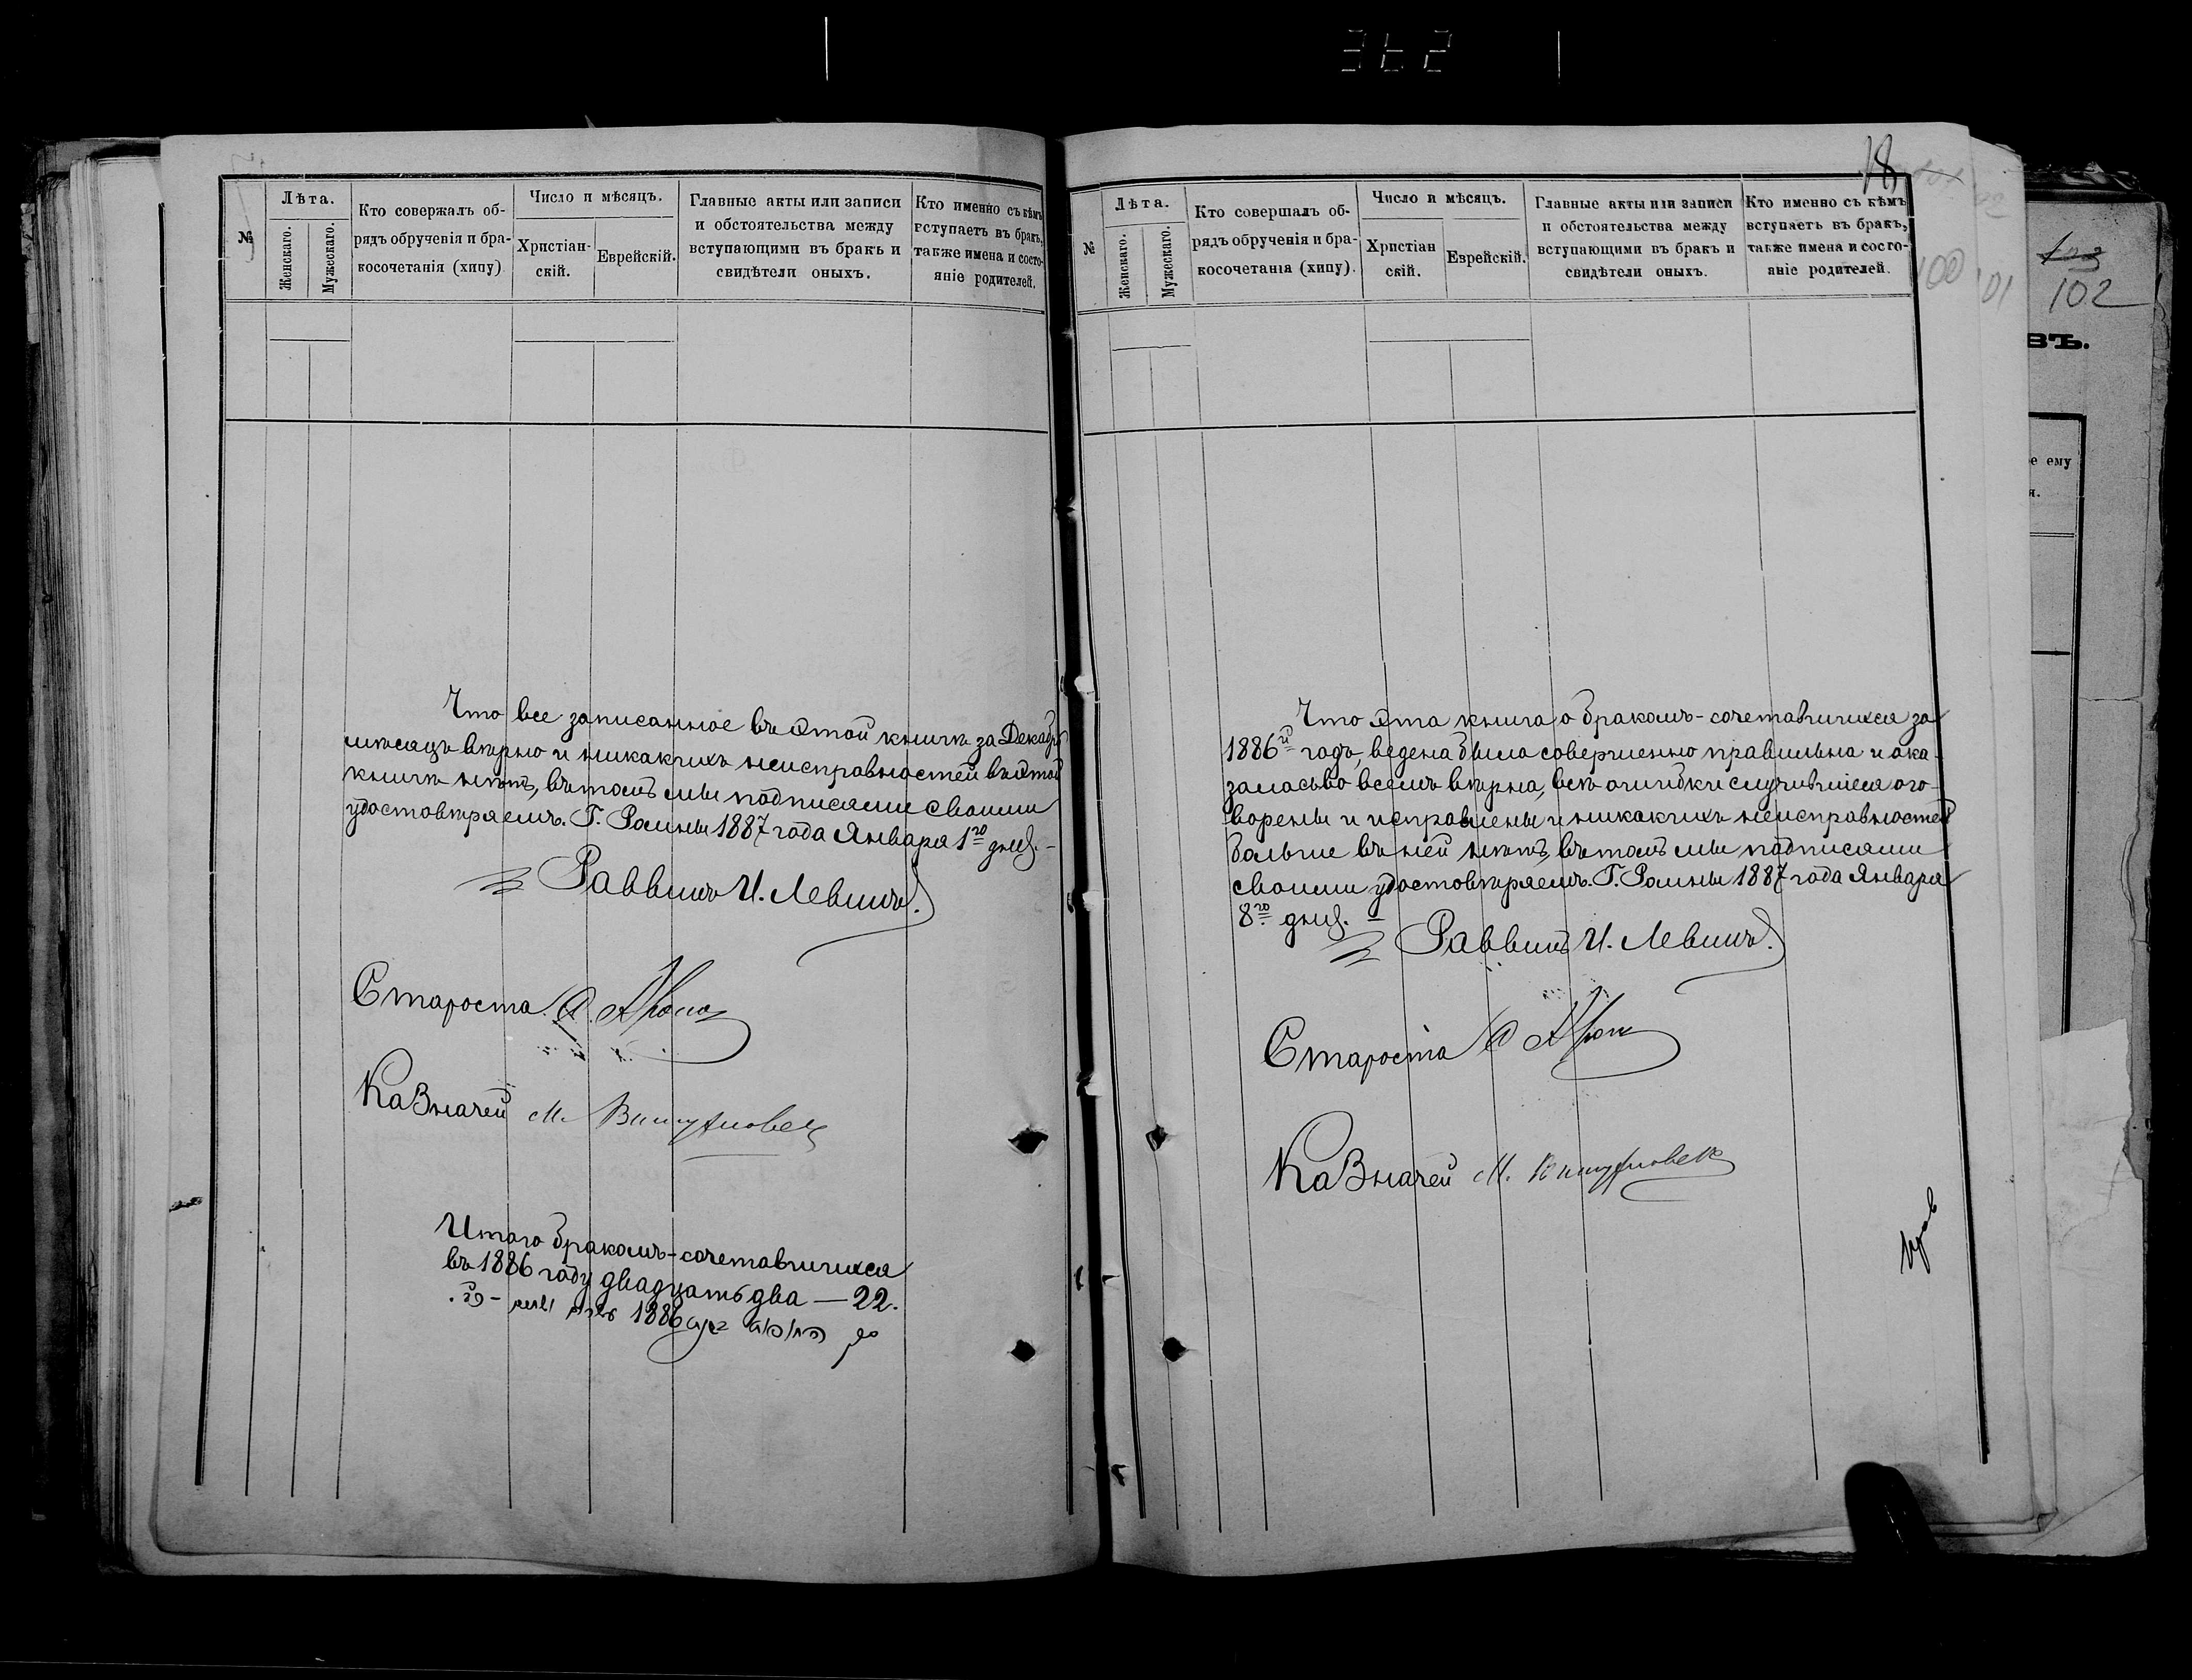 362
№
Лѣта.
Женскаго.
Мужескаго.
Кто совержалъ об-
рядъ обрученія и бра-
косочетанія (хипу)
Число и мѣсяцъ.
Христіан-
скій.
Еврейскій.
Главные акты или записи
и обстоятельства между
вступающими въ бракъ и
свидѣтели оныхъ.
Кто именно съ кѣмъ
вступаетъ въ бракъ,
также имена и состо-
яніе родителей.
Что все записанное въ этой книгѣ за Декабрь
мѣсяцъ вѣрно и никакихъ неисправностей въ этой
книгѣ нѣтъ, въ томъ мы подписями своими
удостовѣряемъ. Г. Ромны 1887 года Января 1го дня. -
Раввинъ И. Левинъ.
Староста А.
Казначей М.
Итого бракомъ-сочетавшихся
въ 1886 году двадцать два — 22.
1886
18
№
Лѣта.
Женскаго.
Мужескаго.
Кто совершалъ об-
рядъ обрученія и бра-
косочетанія (хипу).
Число и мѣсяцъ.
Христіан
скій.
Еврейскій.
Главные акты или записи
и обстоятельства между
вступающими въ бракъ и
свидѣтели оныхъ.
Кто именно съ кѣмъ
вступаетъ въ бракъ,
также имена и состо-
яніе родителей.
Что эта книга о бракомъ-сочетавшихся за
1886й годъ, ведена была совершенно правильно и ока-
залась во всемъ вѣрна, всѣ ошибки случившіеся ого-
ворены и исправлены и никакихъ неисправностей
больше въ ней нѣтъ, въ томъ мы подписями
своими удостовѣряемъ. Г. Ромны 1887 года Января
8го дня. -
Раввинъ И. Левинъ.
Староста А
Казначей М.
100
101
103
102
въ.
е ему
я.